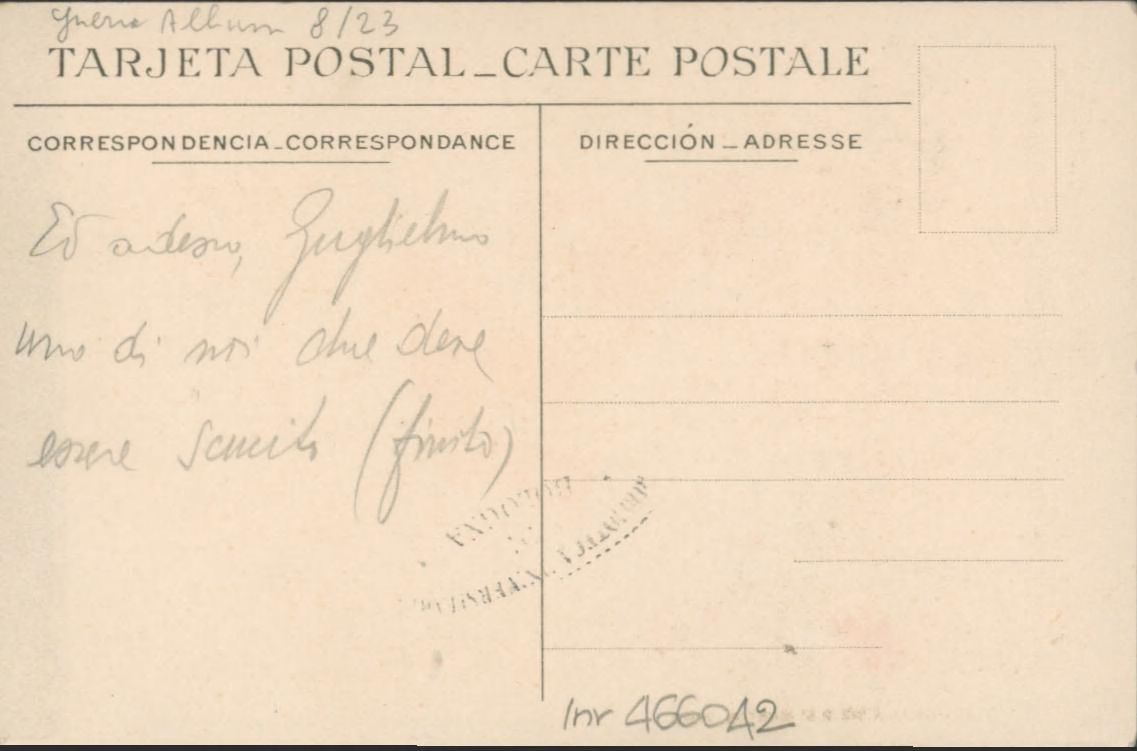 Guerra Album 8/23
TARJETA POSTAL_CARTE POSTALE
CORRESPONDENCIA_CORRESPONDANCE
DIRECCIÓN_ADRESSE
Ed adesso, Guglielmo
uno di noi due deve
essere (finito)
BIBLIOTECA UNIVERSITARIA
BOLOGNA
Inr 466042